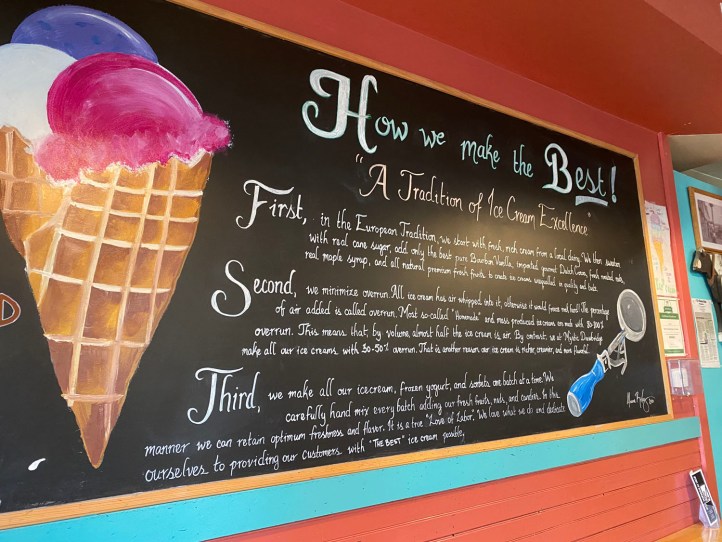 How we make the Best!
"A Tradition of Ice Cream Excellence"
First, in the European Tradition, we start with fresh, rich cream from a local dairy. We then sweeten
with real cane sugar, add only the best pure Bourbon Vanilla, imported gourmet Dutch Cocoa, fresh roasted nuts,
real maple syrup, and all natural premium fresh fruits to create ice creams unequalled in quality and taste.
Second, we minimize overrun. All ice cream has air whipped into it, otherwise it would freeze rock hard! The percentage
of air added is called overrun. Most so-called "Homemade" and mass produced ice creams are made with 80-100%
overrun. This means that, by volume, almost half the ice cream is air. By contrast, we at Mystic Drawbridge
make all our ice creams with 30-50% overrun. That is another reason our ice cream is richer, creamier, and more flavorful.
Third, we make all our icecream, frozen yogurt, and sorbets one batch at a time. We
carefully hand mix every batch adding our fresh fruits, nuts, and candies. In this
manner we can retain optimum freshness and flavor. It is a true "Love of Labor". We love what we do and dedicate
ourselves to providing our customers with "THE BEST" ice cream possible.